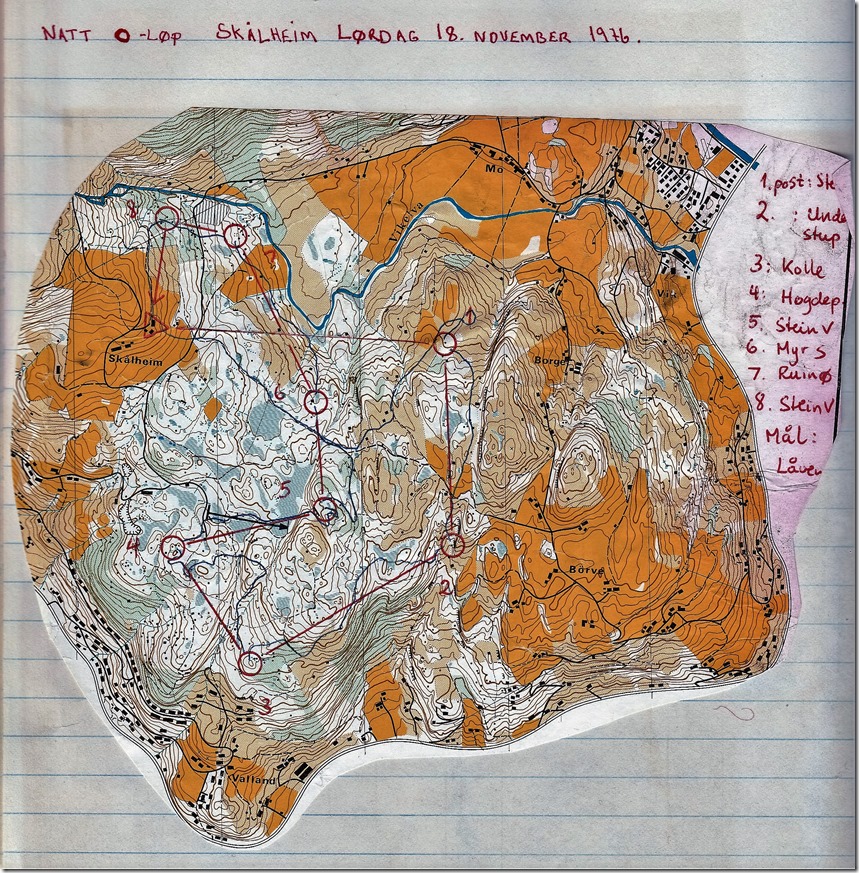 NATT O-LØP SKÅLHEIM LØRDAG 18. NOVEMBER 1976.
Mo
Vikelva
Vik
Skålheim
Borge
Börve
Valland
8
7
1
6
5
4
2
3
1. post: St
2. : Unde
stup
3: Kolle
4: Hogdep.
5. Stein V
6. Myr S
7. Ruin Ø
8. Stein V
Mål:
Låven